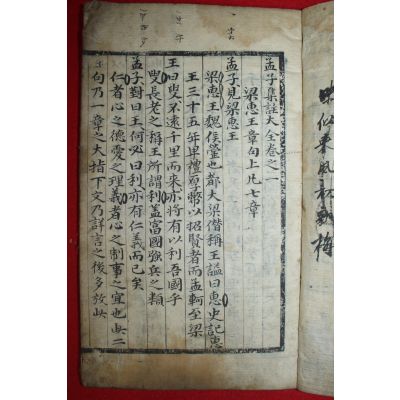 孟子集註大全卷之一
梁惠王章句上 凡七章
孟子見梁惠王
梁惠王魏侯罃也都大梁僭稱王謚曰惠史記惠
王三十五年卑禮厚幣以招賢者而孟軻至梁
王曰叟不遠千里而來亦將有以利吾國乎
叟長老之稱王所謂利盖富國強兵之類
孟子對曰王何必曰利亦有仁義而已矣
仁者心之德愛之理義者心之制事之宜也此二
句乃一章之大指下文乃詳言之後多放此